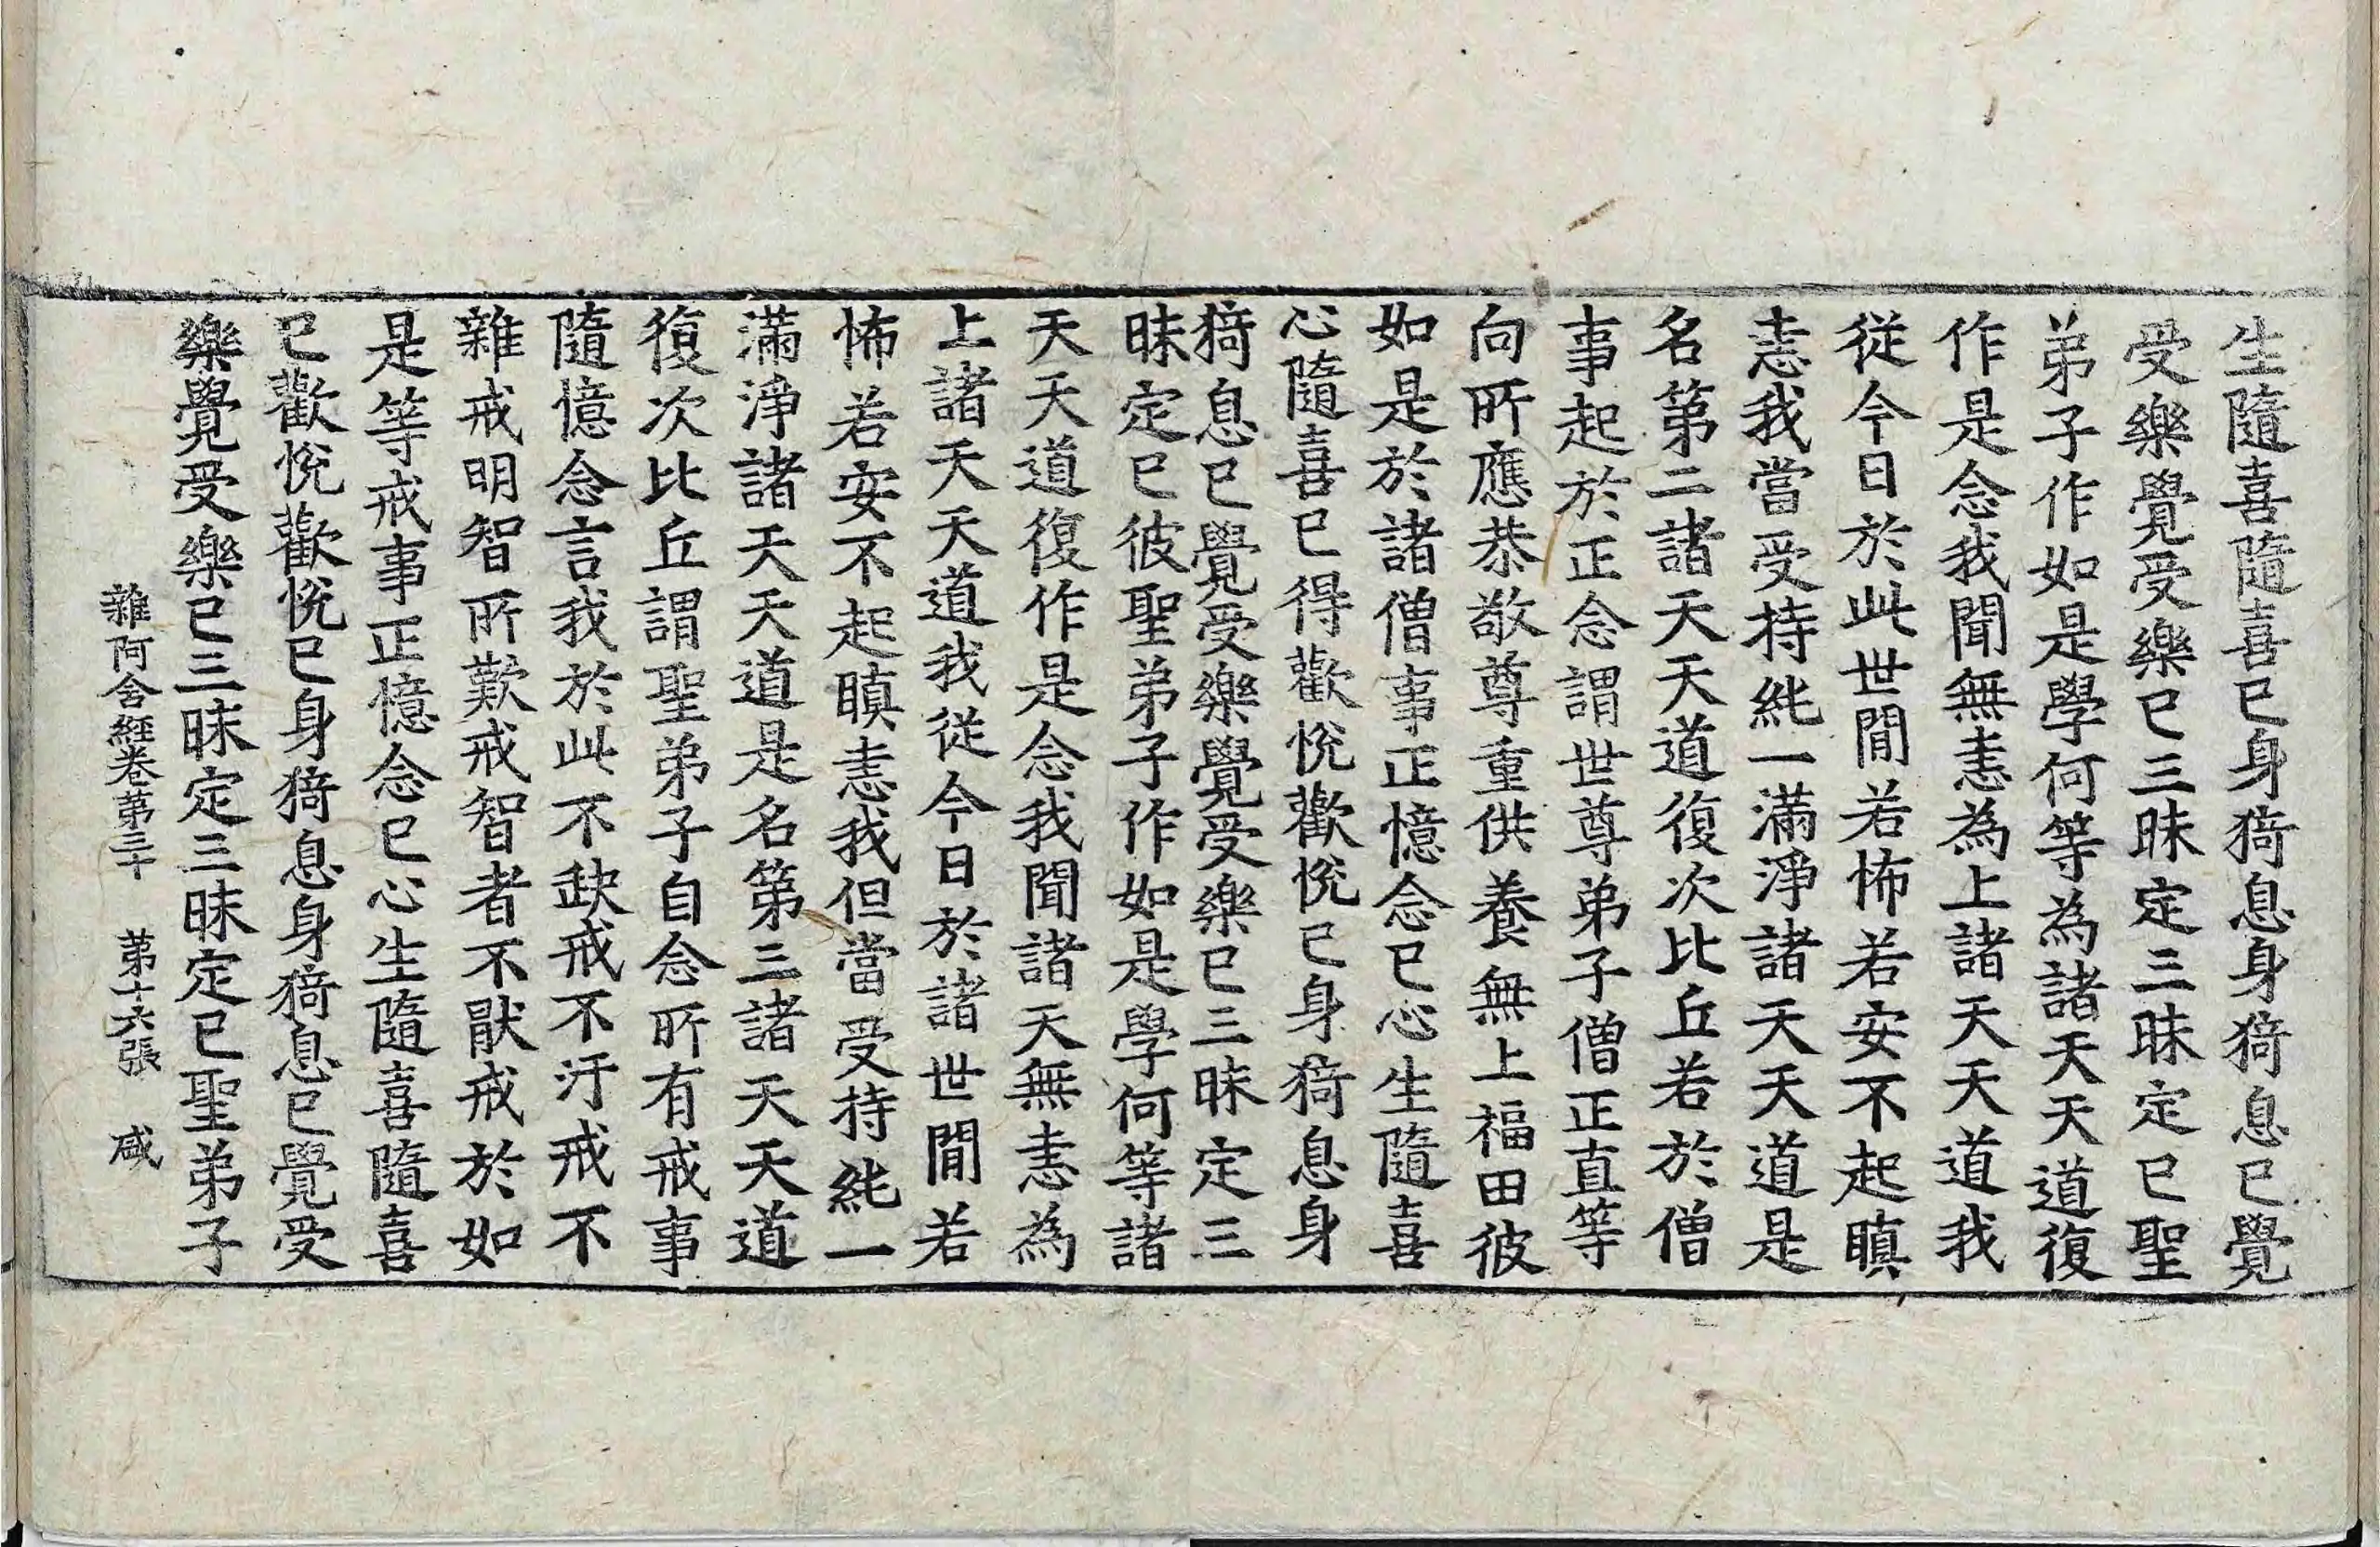 生隨喜隨喜已身猗息身猗息已覺
受樂覺受樂已三昧定三昧定已聖
弟子作如是學何等為諸天天道復
作是念我聞無恚為上諸天天道我
從今日於此世間若怖若安不起瞋
恚我當受持純一滿淨諸天天道是
名第二諸天天道復次比丘若於僧
事起於正念謂世尊弟子僧正直等
向所應恭敬尊重供養無上福田彼
如是於諸僧事正憶念已心生隨喜
心隨喜已得歡悅歡悅已身猗息身
猗息已覺受樂覺受樂已三昧定三
昧定已彼聖弟子作如是學何等諸
天天道復作是念我聞諸天無恚為
上諸天天道我從今日於諸世間若
怖若安不起瞋恚我但當受持純一
滿淨諸天天道是名第三諸天天道
復次比丘謂聖弟子自念所有戒事
隨憶念言我於此不缺戒不汙戒不
雜戒明智所歎戒智者不厭戒於如
是等戒事正憶念已心生隨喜隨喜
已歡悅歡悅已身猗息身猗息已覺受
樂覺受樂已三昧定三昧定已聖弟子
雜阿含經卷第三十 第十六張 咸